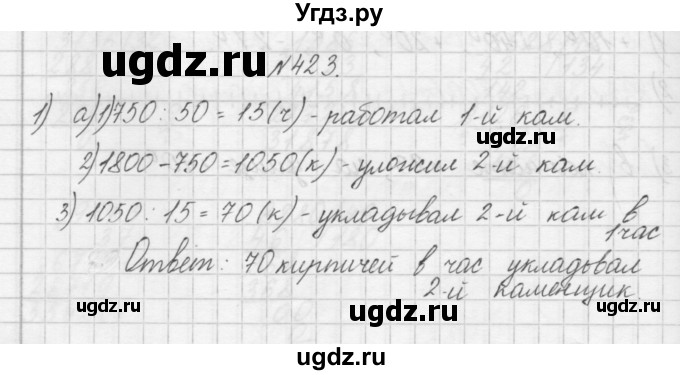 Угдз.ру
ugdz.ru
№423.
1) а)1)750 : 50 = 15(ч) - работал 1-й кам.
2)1800 - 750 = 1050(к) - уложил 2-й кам.
3) 1050 : 15 = 70(к) - укладывал 2-й кам в
1час
Ответ: 70 кирпичей в час укладывал
2-й каменщик.
ugdz.ru
ugdz.ru
ugdz.ru
ugdz.ru
ugdz.ru
ugdz.ru
ugdz.ru